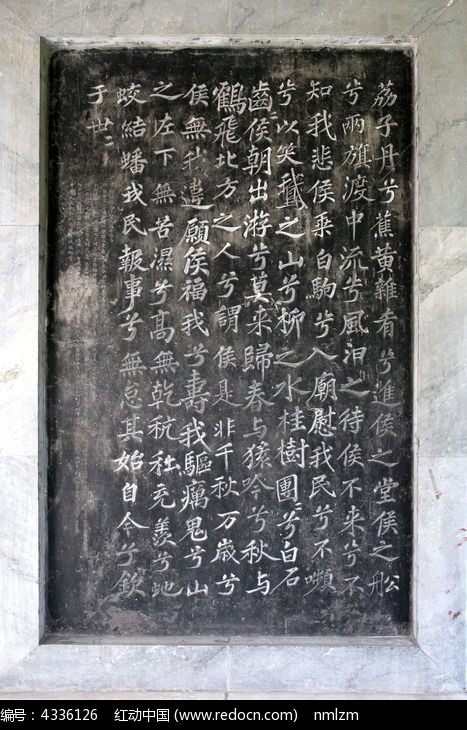 荔子丹兮蕉黄雜肴兮進侯之堂侯之船
兮兩旗渡中流兮風汩之待侯不来兮不
知我悲侯乘白駒兮入廟慰我民兮不嚬
兮以笑鵝之山兮柳之水桂樹團〻兮白石
齒〻侯朝出游兮莫来歸春与猨吟兮秋与
鶴飛北方之人兮謂侯是非千秋万歲兮
侯無我違願侯福我兮壽我驅癘鬼兮山
之左下無苦濕兮高無乾秔稌充羨兮虵
蛟結蟠我民報事兮無怠其始自今兮欽
于世〻
编号：4336126 红动中国 (www.redocn.com) nmlzm